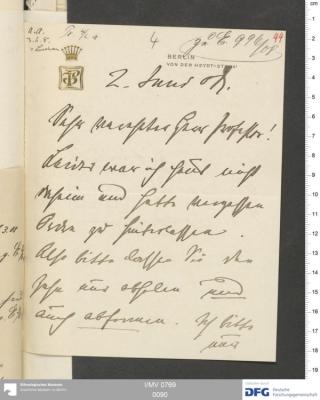 4
zu E 996/08
44
BERLIN
VON DER HEYDT-STR.
2. Juni 08.
Sehr verehrter Herr Professor!
Leider war ich heute nicht
daheim und hatte vergessen
Order zu hinterlassen.
Also bitte lassen Sie den
nur abholen und
auch abformen. Ich bitte
nur
Ethnologisches Museum
Staatliche Museen zu Berlin
I/MV 0769
0090
gefördert durch
DFG Deutsche
Forschungsgemeinschaft
1
2
3
4
5
6
7
8
9
10
11
12
13
14
15
16
17
18
19